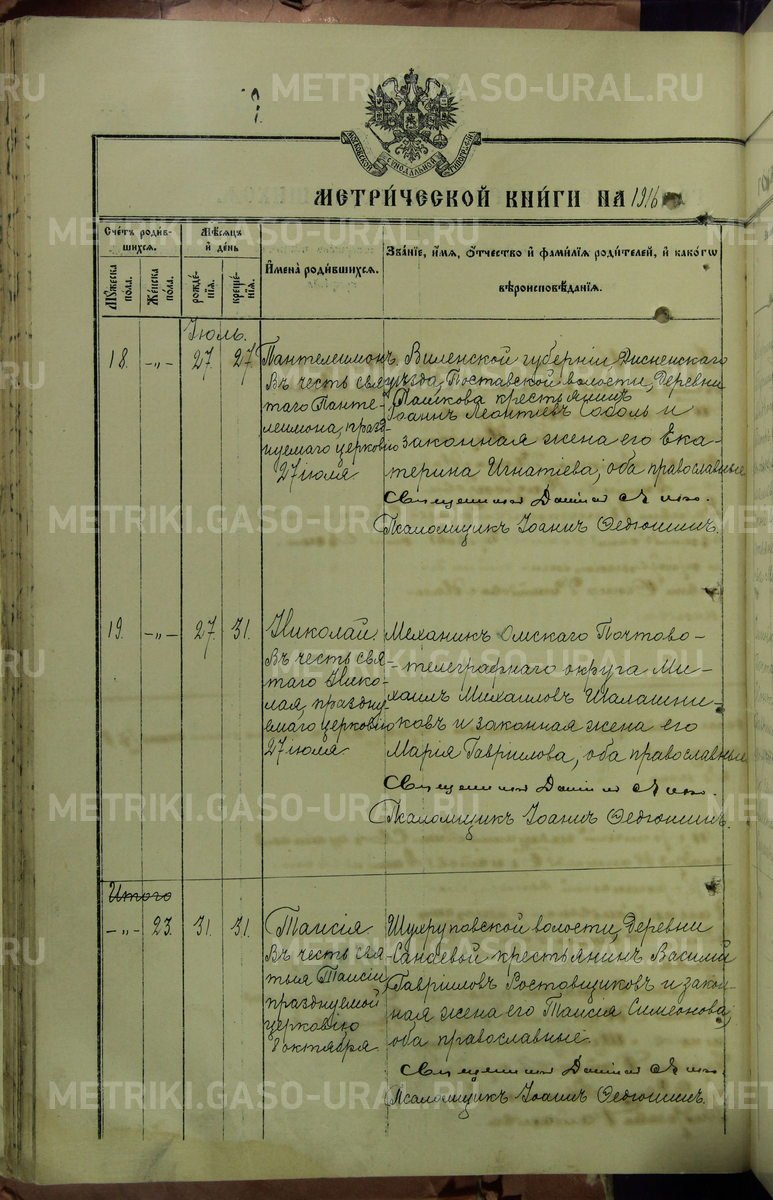 METRIKI.GASO-URAL.RU
МОСКОВСКОЙ СѴНОДАЛЬНОЙ ТИПОГРАФІИ
МЕТРИ́ЧЕСКОЙ КНИ́ГИ НА 1916
Сче́тъ роди́в-
шихся.
Му́жеска по́ла.
Же́нска по́ла.
Мѣ́сяцъ
и҆ де́нь
рожде́-
нїѧ.
креще́-
нїѧ.
И҆мена̀ роди́вшихся.
Зва́нїе, и҆́мѧ, ѻ҆́тчество и҆ фами́лїѧ роди́телей, и҆ како́гѡ
вѣроисповѣ́данїѧ.
Іюль.
18. -„- 27. 27.
Пантелеимонъ
Въ честь свя-
таго Панте-
леимона, празд-
нуемаго церковію
27 іюля
Виленской губерніи, Дисненскаго
уѣзда, Поставской волости, деревни
Пашкова крестьянинъ
Іоаннъ Леонтіевъ Соболь и
законная жена его Ека-
терина Игнатіева, оба православные
Священникъ
Псаломщикъ Іоаннъ Ѳедюшинъ.
19. -„- 27. 31.
Николай.
Въ честь свя-
таго Нико-
лая, праздну-
емаго церковію
27 іюля
Механикъ Омскаго Почтово-
-телеграфнаго округа Ми-
хаилъ Михаиловъ Шалашни-
ковъ и законная жена его
Марія Гавриилова, оба православные
Священникъ
Псаломщикъ Іоаннъ Ѳедюшинъ.
Итого
-„- 23. 31. 31.
Таисія.
Въ честь свя-
тыя Таисіи,
празднуемой
церковію
8 октября
волости, деревни
крестьянинъ Василій
Гавріиловъ Ростовщиковъ и закон-
ная жена его Таисія Симеонова,
оба православные.
Священникъ
Псаломщикъ Іоаннъ Ѳедюшинъ.